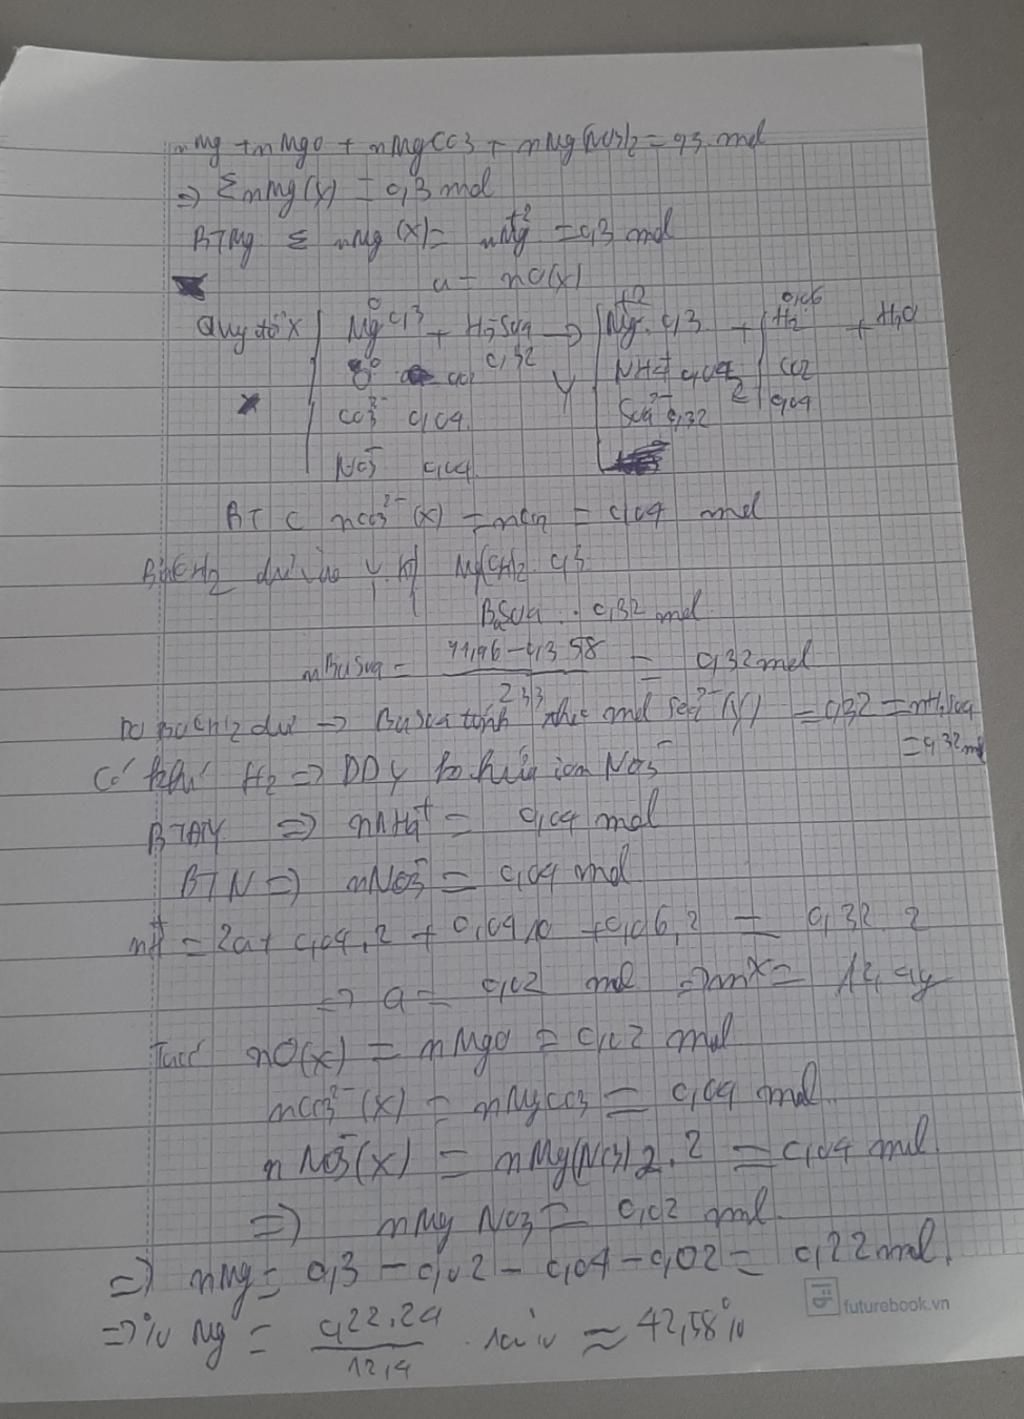 nMg + nMgO + nMgCO3 + nMg(NO3)2 = 0,3 mol
=> ΣnMg(X) = 0,3 mol
BTMg Σ nMg (X) = nMg+2 = 0,3 mol
a = nO(X)
Quy đổi X Mg0 0,3 + H2SO4 0,32 -> Y Mg+2 0,3 + H2 0,06 + H2O
O0 NH4+ 0,04 CO2
CO3 2- 0,04 SO4 2- 0,32 0,04
NO3- 0,04
BT C nCO3 2- (X) = nCO2 = 0,04 mol
Ba(OH)2 dư vào Y Mg(OH)2 0,3
BaSO4 0,32 mol
nBaSO4 = 91,96 - 0,3.58 / 233 = 0,32 mol
Do Ba(OH)2 dư => BaSO4 tính theo mol SO4 2- (Y) = 0,32 = nH2SO4
= 0,32 mol
Có khí H2 => DD Y ko chứa ion NO3-
BTĐTY => nNH4+ = 0,04 mol
BTN => nNO3- = 0,04 mol
nH+ = 2a + 0,04.2 + 0,04.10 + 0,06.2 = 0,32.2
=> a = 0,02 mol => mX = 12,4g
Ta có nO(X) = nMgO = 0,02 mol
nCO3 2- (X) = nMgCO3 = 0,04 mol
nNO3- (X) = nMg(NO3)2.2 = 0,04 mol
=> nMg NO3 = 0,02 mol
=> nMg = 0,3 - 0,02 - 0,04 - 0,02 = 0,22 mol.
=> % Mg = 0,22.24 / 12,4 . 100% ≈ 42,58%
futurebook.vn